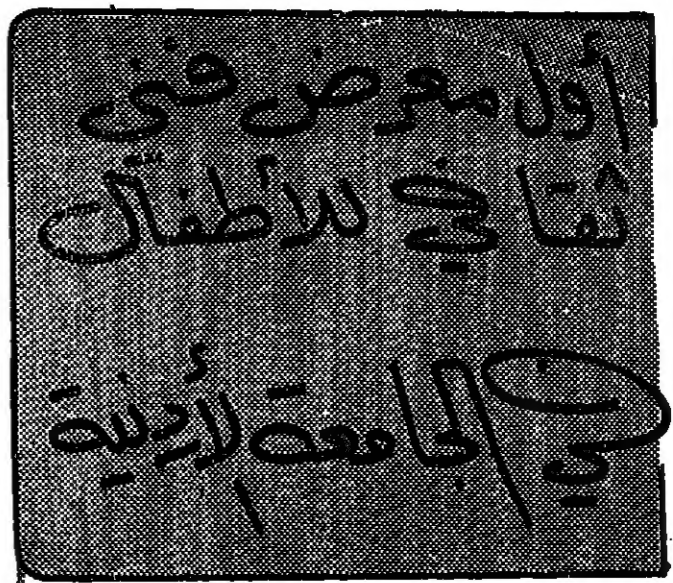 أول معرض فني
ثقافي للأطفال
في الجامعة الأردنية